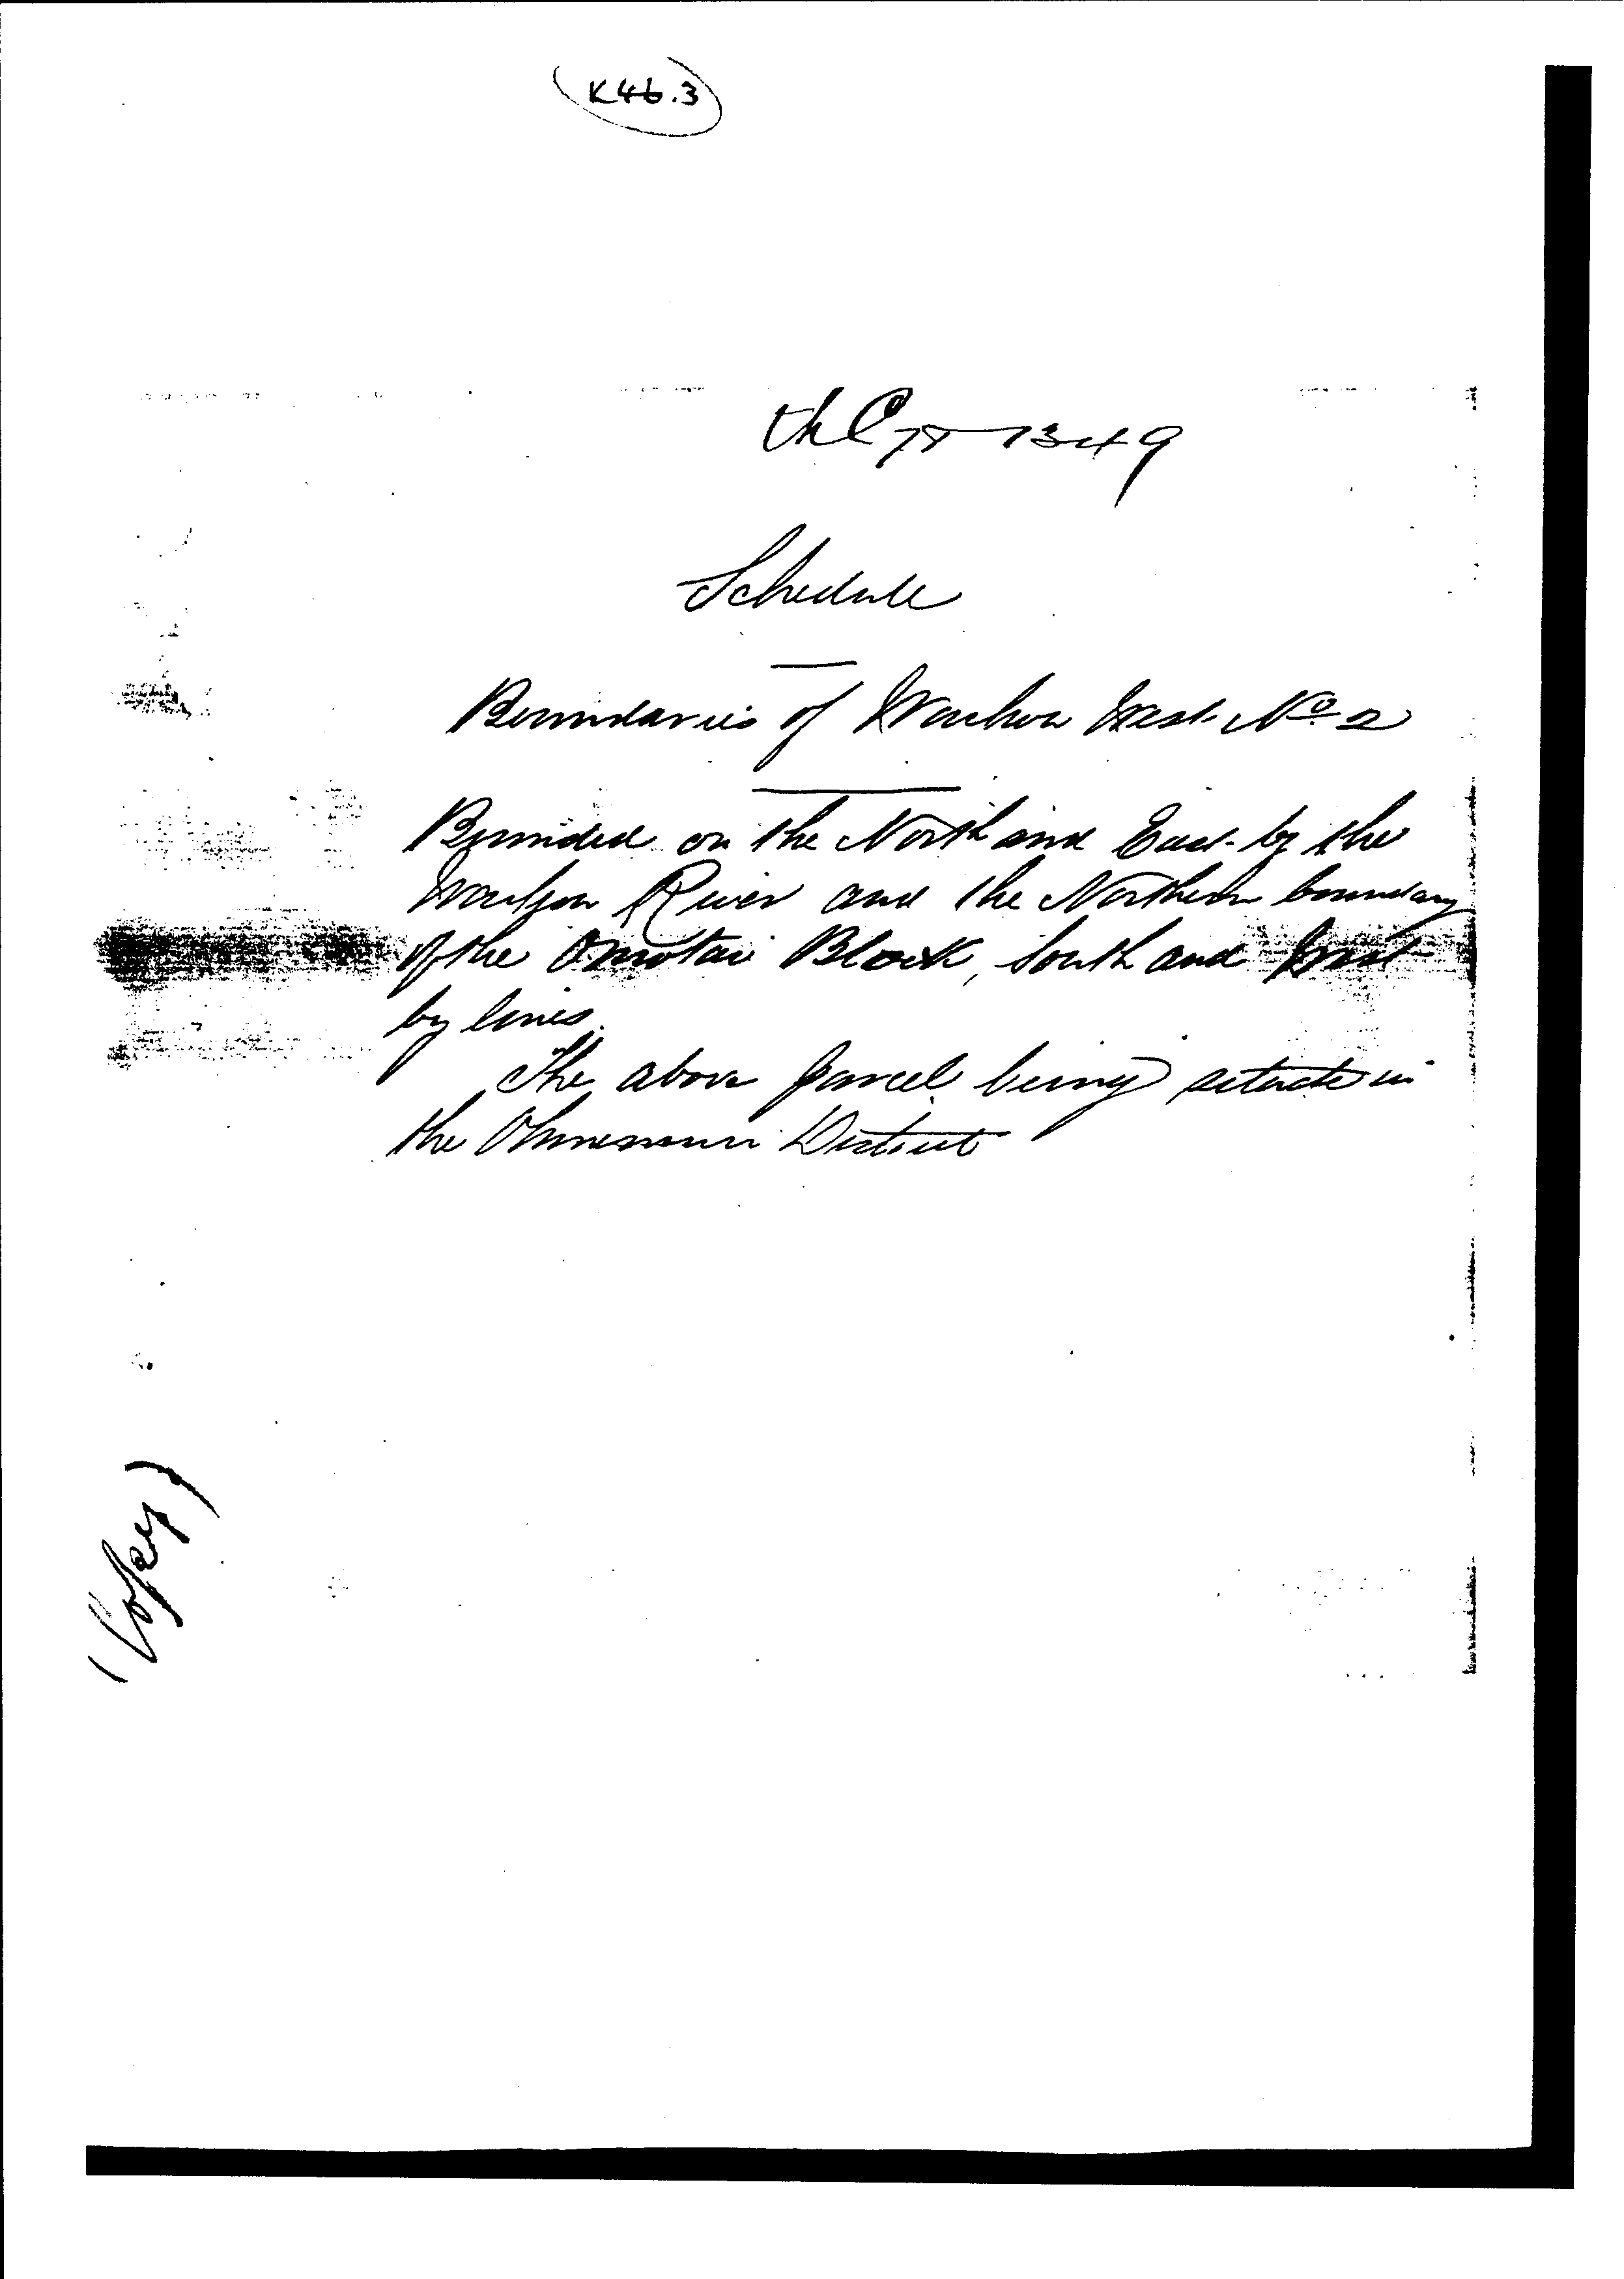 K46.3
NLC 78-1349
Schedule
Boundaries of Waihou West No 2
Bounded on the North and East by the
Waihou River and the Northern boundary
of the Omotai Block, South and West
by lines.
The above parcel being situate in
the Ohinemuri District
(Copy)